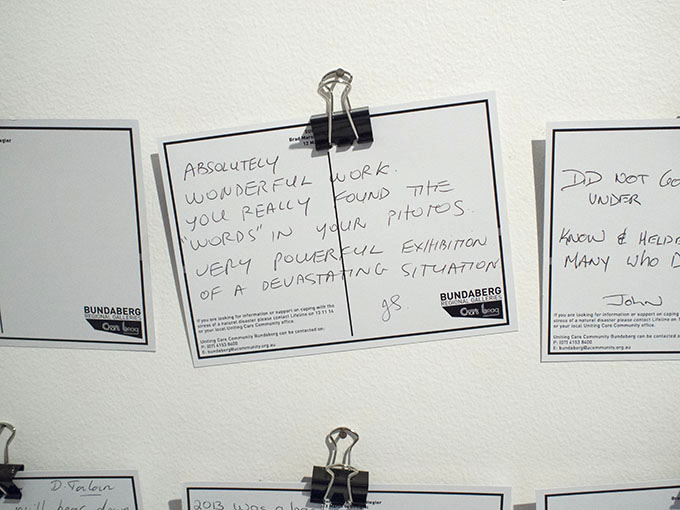 egler
BUNDABERG
REGIONAL GALLERIES
Brad Mars
12 M
ABSOLUTELY
WONDERFUL WORK.
YOU REALLY FOUND THE
"WORDS" IN YOUR PHOTOS.
VERY POWERFUL EXHIBITION
OF A DEVASTATING SITUATION
JS
If you are looking for information or support on coping with the
stress of a natural disaster please contact Lifeline on 13 11 14
or your local Uniting Care Community office.
Uniting Care Community Bundaberg can be contacted on:
P: (07) 4153 8400
E: bundaberg@uccommunity.org.au
BUNDABERG
REGIONAL GALLERIES
DID NOT GO
UNDER
KNOW & HELDE
MANY WHO D
JOHN
If you are looking for information or support on coping
stress of a natural disaster please contact Lifeline
or your local Uniting Care Community office.
Uniting Care Community Bundaberg can be contacted o
P: (07) 4153 8400
E: bundaberg@uccommunity.org.au
will
down
2013 was a
egler